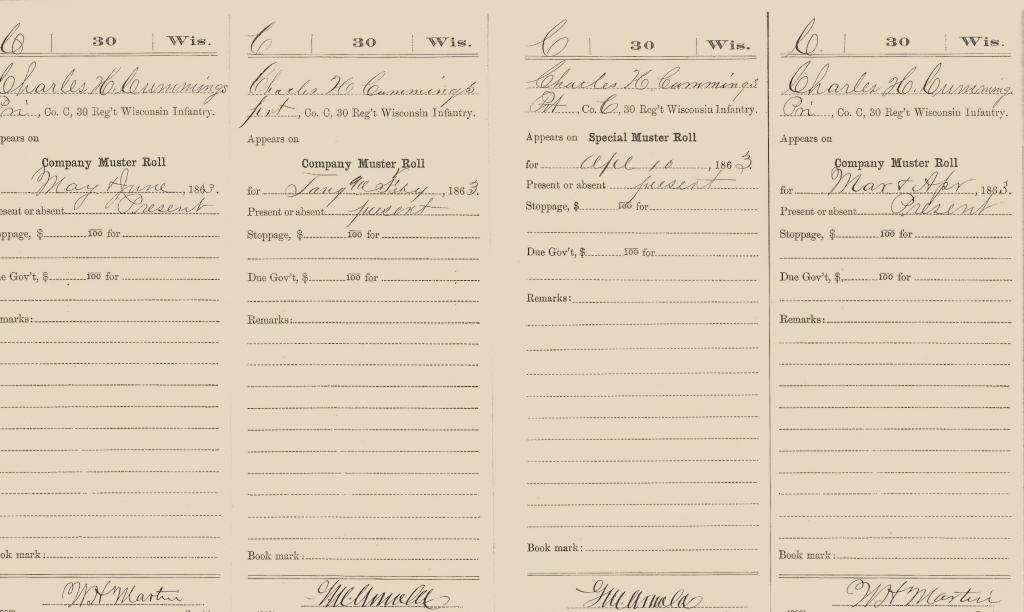 C | 30 | Wis.
Charles H. Cummings
Pri, Co. C, 30 Reg't Wisconsin Infantry.
ppears on
Company Muster Roll
May & June, 1863.
esent or absent Present
oppage, $ 100 for
ue Gov't, $ 100 for
marks:
ok mark:
W H Martin
C | 30 | Wis.
Charles H Cummings
pvt, Co. C, 30 Reg't Wisconsin Infantry.
Appears on
Company Muster Roll
for 1863.
Present or absent present
Stoppage, $ 100 for
Due Gov't, $ 100 for
Remarks:
Book mark:
C | 30 | Wis.
Charles H. Cummings
Pvt, Co. C, 30 Reg't Wisconsin Infantry.
Appears on Special Muster Roll
for Apl 10, 1863.
Present or absent present
Stoppage, $ 100 for
Due Gov't, $ 100 for
Remarks:
Book mark:
C. | 30 | Wis.
Charles H. Cummings
Pri, Co. C, 30 Reg't Wisconsin Infantry.
Appears on
Company Muster Roll
for Mar & Apr, 1863.
Present or absent Present
Stoppage, $ 100 for
Due Gov't, $ 100 for
Remarks:
Book mark:
W H Martin